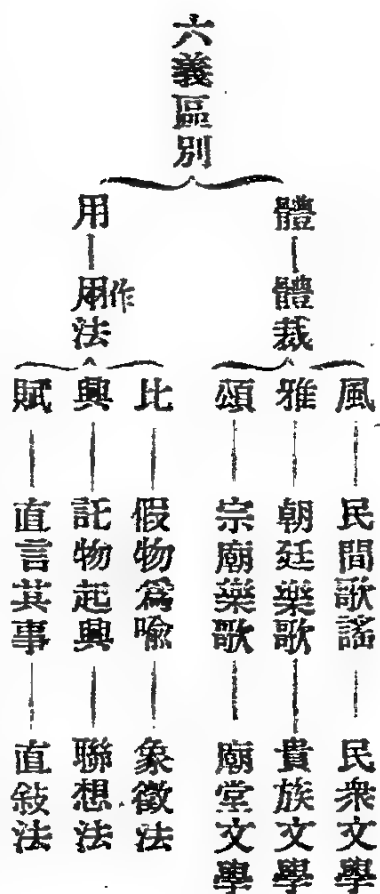 六義區別
體—體裁
風—民間歌謠—民衆文學
雅—朝廷樂歌—貴族文學
頌—宗廟樂歌—廟堂文學
用—用法
作
比—假物爲喩—象徵法
興—託物起興—聯想法
賦—直言其事—直敍法